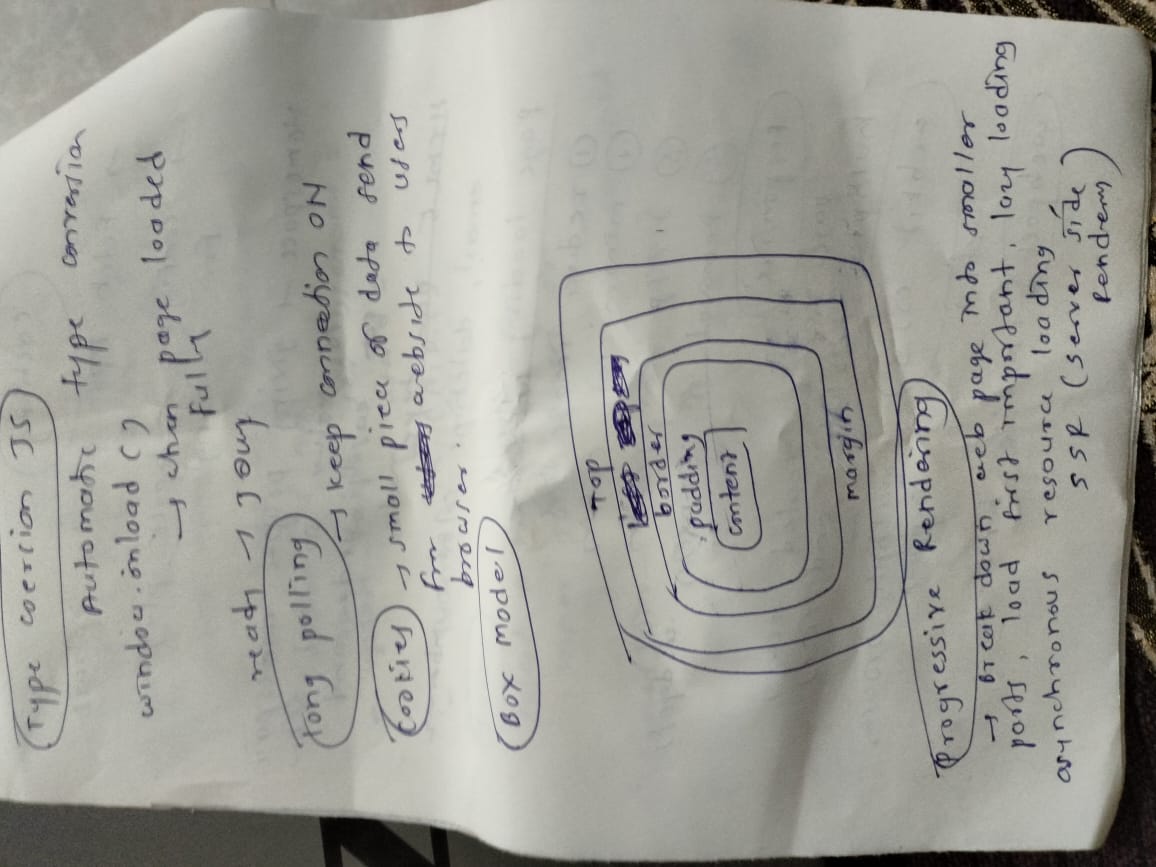 Type coercion JS
Automatic type conversion
window.onload()
→ when page loaded
fully
ready →
long polling
→ keep connection ON
Cookies → small piece of data send
from webside to users
browser.
Box model
Top
border
padding
content
margin
Progressive Rendering
→ Break down web page into smaller
parts, load first important, lazy loading
asynchronous resource loading
SSR (server side
Rendering)